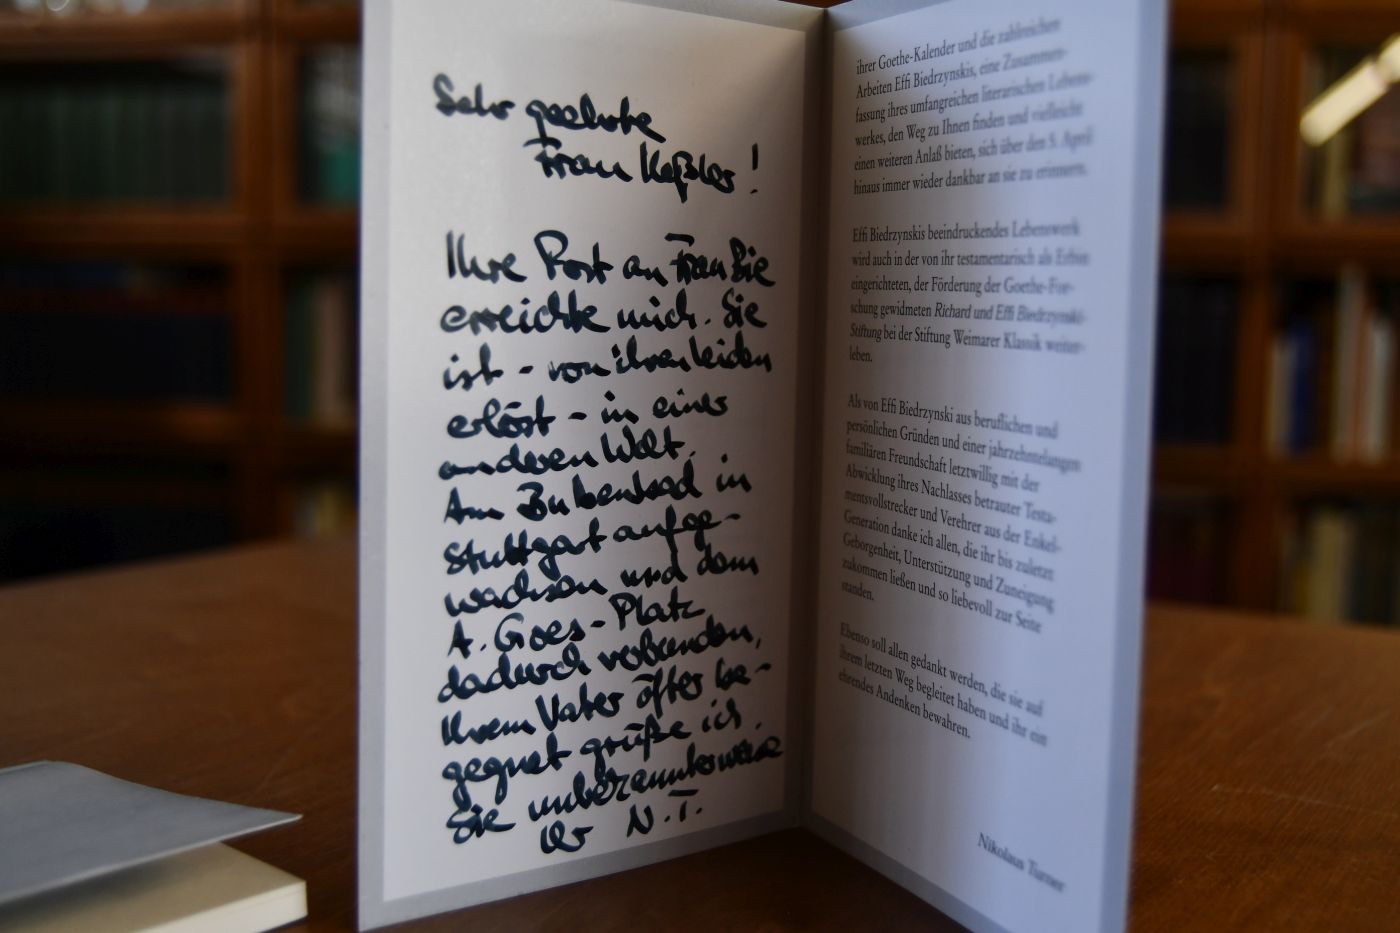 Sehr geehrte
Frau Keßler!
Ihre Post an Frau Bie
erreichte mich. Sie
ist - von ihren Leiden
erlöst - in einer
anderen Welt.
Am Bubenbad in
Stuttgart aufge-
wachsen und dem
A. Goes-Platz
dadurch verbunden,
Ihrem Vater öfter be-
gegnet grüße ich
Sie unbekannterweise
Ihr N.T.
ihrer Goethe-Kalender und die zahlreichen
Arbeiten Effi Biedrzynskis, eine Zusammen-
fassung ihres umfangreichen literarischen Lebens-
werkes, den Weg zu Ihnen finden und vielleicht
einen weiteren Anlaß bieten, sich über den 5. April
hinaus immer wieder dankbar an sie zu erinnern.
Effi Biedrzynskis beeindruckendes Lebenswerk
wird auch in der von ihr testamentarisch als Erbin
eingerichteten, der Förderung der Goethe-For-
schung gewidmeten Richard und Effi Biedrzynski-
Stiftung bei der Stiftung Weimarer Klassik weiter-
leben.
Als von Effi Biedrzynski aus beruflichen und
persönlichen Gründen und einer jahrzehntelangen
familiären Freundschaft letztwillig mit der
Abwicklung ihres Nachlasses betrauter Testa-
mentsvollstrecker und Verehrer aus der Enkel-
Generation danke ich allen, die ihr bis zuletzt
Geborgenheit, Unterstützung und Zuneigung
zukommen ließen und so liebevoll zur Seite
standen.
Ebenso soll allen gedankt werden, die sie auf
ihrem letzten Weg begleitet haben und ihr ein
ehrendes Andenken bewahren.
Nikolaus Turner